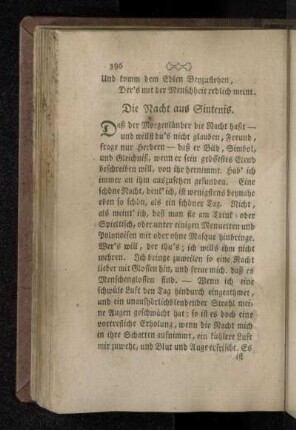 396
Und komm dem Edlen Beyzustehen,
Der's mit der Menschheit redlich meint.
Die Nacht aus Sintenis.
Daß der Morgenländer die Nacht haßt —
und willst du's nicht glauben, Freund,
frage nur Herdern — daß er Bild, Simbol,
und Gleichniß, wenn er sein größestes Elend
beschreiben will, von ihr hernimmt. Hab' ich
immer an ihm auszusetzen gefunden. Eine
schöne Nacht, denk' ich, ist wenigstens beynahe
eben so schön, als ein schöner Tag. Nicht,
als meint' ich, daß man sie am Trink- oder
Spieltisch, oder unter einigen Menuetten und
Polonoisen mit oder ohne Masque hinbringe.
Wer's will, der thu's; ich wills ihm nicht
wehren. Ich bringe zuweilen so eine Nacht
lieber mit Glossen hin, und ferne mich, daß es
Menschenglossen sind. — Wenn ich eine
schwüle Luft den Tag hindurch eingeathmet,
und ein unaufhörlichblendender Strahl meine
Augen geschwächt hat; so ist es doch eine
vortrefliche Erholung, wenn die Nacht mich
in ihre Schatten aufnimmt, ein kühlere Luft
mir zuweht, und Blut und Auge erfrischt. Es
ist